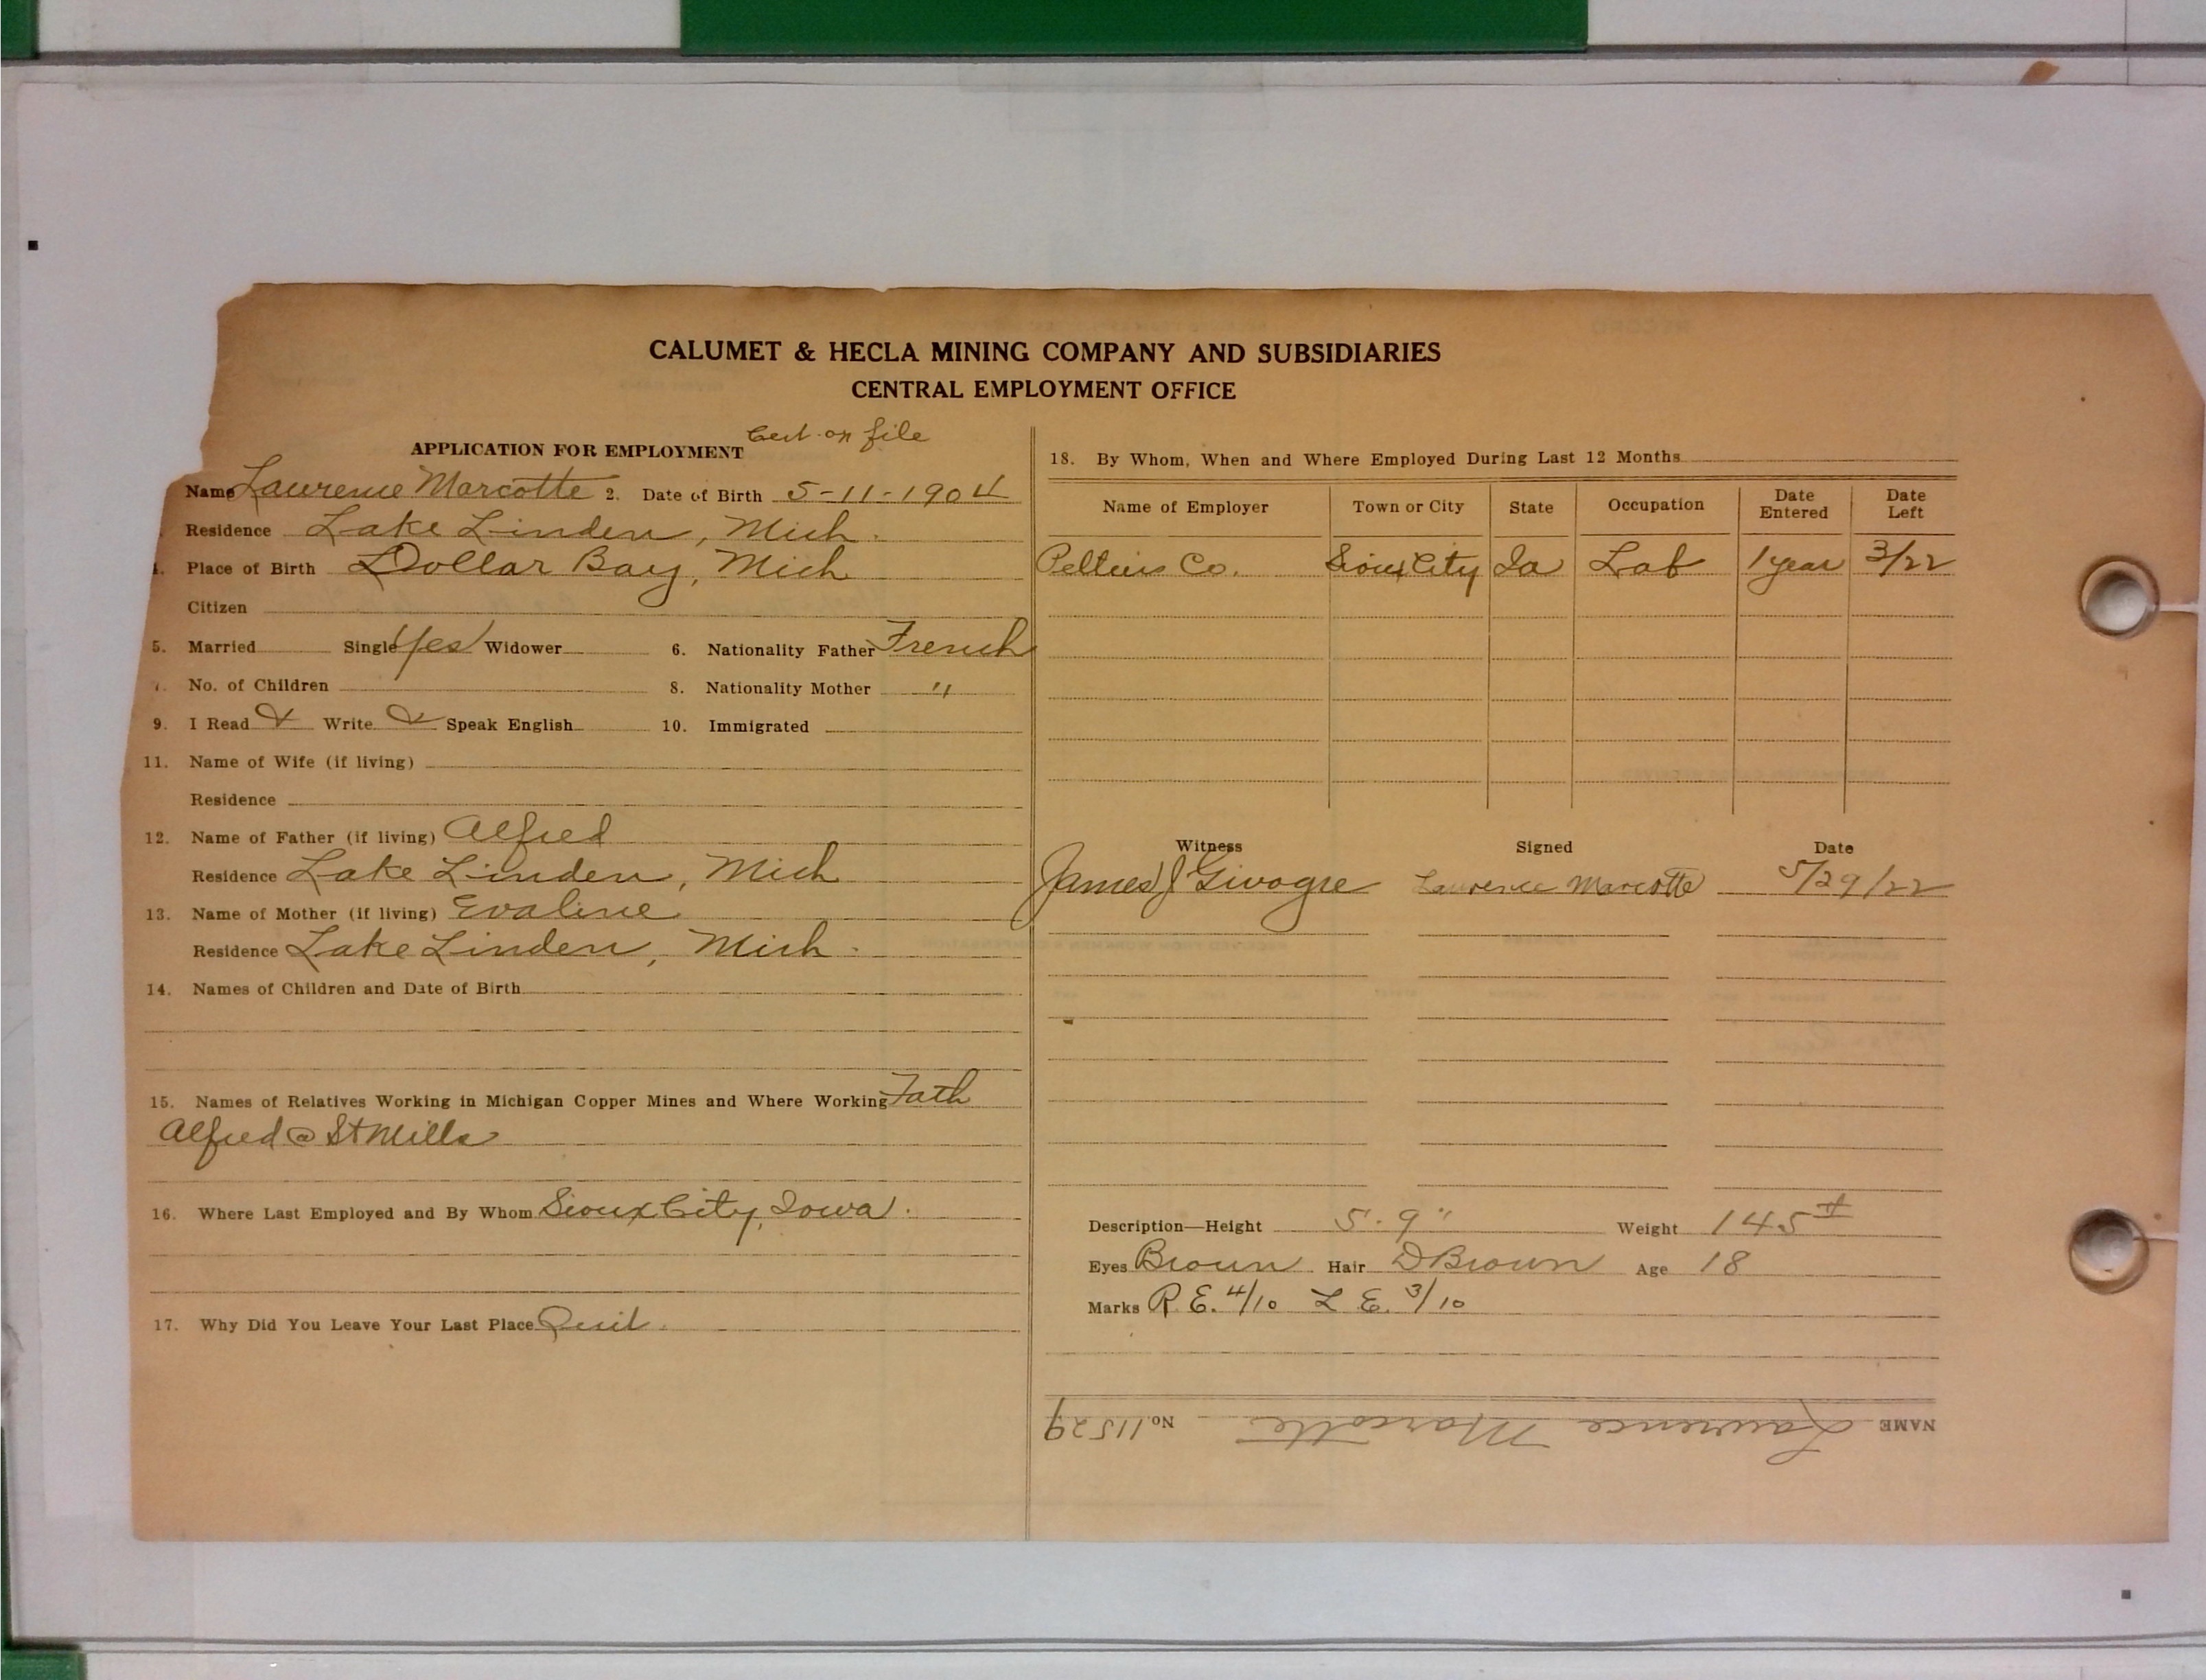 CALUMET & HECLA MINING COMPANY AND SUBSIDIARIES
CENTRAL EMPLOYMENT OFFICE
APPLICATION FOR EMPLOYMENT Cert on file
Name Lawrence Marcotte 2. Date of Birth 5-11-1904
Residence Lake Linden, Mich.
4. Place of Birth Dollar Bay, Mich
Citizen
5. Married Single Yes Widower 6. Nationality Father French
7. No. of Children 8. Nationality Mother "
9. I Read & Write & Speak English 10. Immigrated
11. Name of Wife (if living)
Residence
12. Name of Father (if living) Alfred
Residence Lake Linden, Mich
13. Name of Mother (if living) Evaline
Residence Lake Linden, Mich.
14. Names of Children and Date of Birth
15. Names of Relatives Working in Michigan Copper Mines and Where Working Fath
Alfred @ St Mills
16. Where Last Employed and By Whom Sioux City, Iowa.
17. Why Did You Leave Your Last Place Quit.
18. By Whom, When and Where Employed During Last 12 Months
Name of Employer Town or City State Occupation Date Entered Date Left
Co. Sioux City Ia Lab 1 year 3/22
Witness Signed Date
James J Lawrence Marcotte 5/29/22
Description—Height 5-9" Weight 145#
Eyes Brown Hair D Brown Age 18
Marks R.E. 4/10 L E. 3/10
NAME Lawrence Marcotte No. 11529